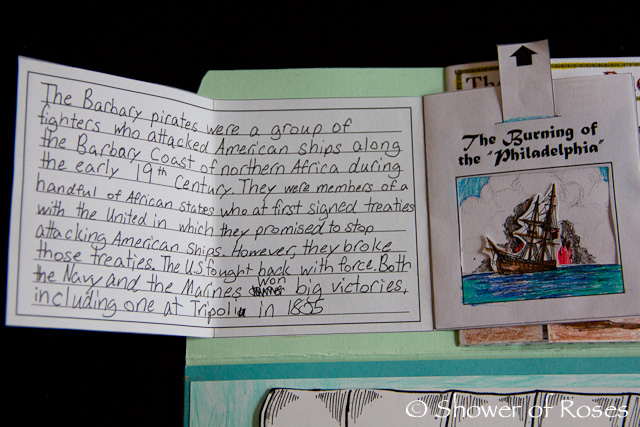 The Barbary pirates were a group of
fighters who attacked American ships along
the Barbary Coast of northern Africa during
the early 19th Century. They were members of a
handful of African states who at first signed treaties
with the United in which they promised to stop
attacking American Ships. However, they broke
those treaties. The U.S fought back with force. Both
the Navy and the Marines won big victories,
including one at Tripoli in 1855
The Burning of
the "Philadelphia"
© Shower of Roses